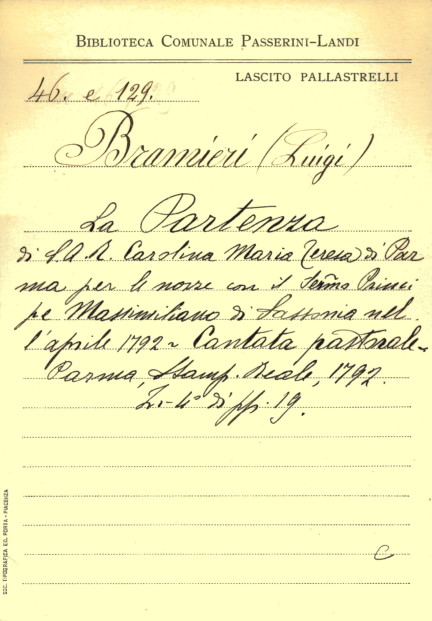 BIBLIOTECA COMUNALE PASSERINI-LANDI
LASCITO PALLASTRELLI
46. e 129.
Bramieri (Luigi)
La Partenza
di S. A. R. Carolina Maria Teresa di Par
ma per le nozze con il Sermo Princi
pe Massimiliano di Sassonia nel
l'aprile 1792 ~ Cantata pastorale -
Parma, Stamp. Reale, 1792.
In-4° di pp. 19.
C
SOC. TIPOGRAFICA ED. PORTA - PIACENZA